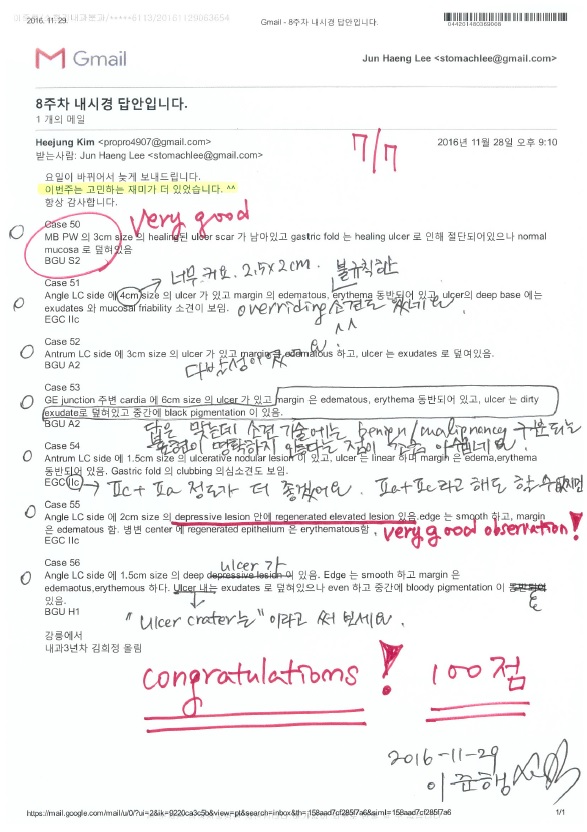 2016. 11. 29.
Gmail - 8주차 내시경 답안입니다.
044201480369006
Gmail
Jun Haeng Lee <stomachlee@gmail.com>
8주차 내시경 답안입니다.
1 개의 메일
Heejung Kim <propro4907@gmail.com>
2016년 11월 28일 오후 9:10
받는사람: Jun Haeng Lee <stomachlee@gmail.com>
7/7
요일이 바뀌어서 늦게 보내드립니다.
이번주는 고민하는 재미가 더 있었습니다. ^^
항상 감사합니다.
very good
Case 50
MB PW 의 3cm size 의 healing된 ulcer scar 가 남아있고 gastric fold 는 healing ulcer 로 인해 절단되어있으나 normal
mucosa 로 덮혀있음
BGU S2
너무 커요. 2.5x2cm.
불규칙한
Case 51
Angle LC side 에 4cm size 의 ulcer 가 있고 margin 의 edematous, erythema 동반되어 있고, ulcer의 deep base 에는
exudates 와 mucosal friability 소견이 보임.
overriding 소견도 있네요.
EGC IIc
^^
Case 52
Antrum LC side 에 3cm size 의 ulcer 가 있고 margin은 edematous 하고, ulcer 는 exudates 로 덮여있음.
BGU A2
다발성이었고요.
Case 53
GE junction 주변 cardia 에 6cm size 의 ulcer 가 있고 margin 은 edematous, erythema 동반되어 있고, ulcer 는 dirty
exudate로 덮혀있고 중간에 black pigmentation 이 있음.
BGU A2
답은 맞는데 소견 기술에는 benign/malignancy 구분되는
표현이 명확하지 않다는 점이 조금 아쉽네요.
Case 54
Antrum LC side 에 1.5cm size 의 ulcerative nodular lesion 이 있고, ulcer 는 linear 하며 margin 은 edema,erythema
동반되어 있음. Gastric fold 의 clubbing 의심소견도 보임.
EGC IIc
→ IIc + IIa 정도가 더 좋겠어요. IIa+IIc라고 해도 할 수 없지만
Case 55
Angle LC side 에 2cm size 의 depressive lesion 안에 regenerated elevated lesion 있음.edge 는 smooth 하고, margin
은 edematous 함. 병변 center 에 regenerated epithelium 은 erythematous함.
very good observation!
EGC IIc
Case 56
ulcer 가
Angle LC side 에 1.5cm size 의 deep depressive lesion 이 있음. Edge 는 smooth 하고 margin 은
edemaotus,erythemous 하다. Ulcer 내는 exudates 로 덮혀있으나 even 하고 중간에 bloody pigmentation 이 동반되어
있음.
BGU H1
"Ulcer crater는" 이라고 써 보세요.
강릉에서
내과3년차 김희정 올림
congratulations! 100점
2016-11-29
이준행
https://mail.google.com/mail/u/0/?ui=2&ik=9220ca3c5b&view=pt&search=inbox&th=158aad7cf285f7a6&siml=158aad7cf285f7a6
1/1